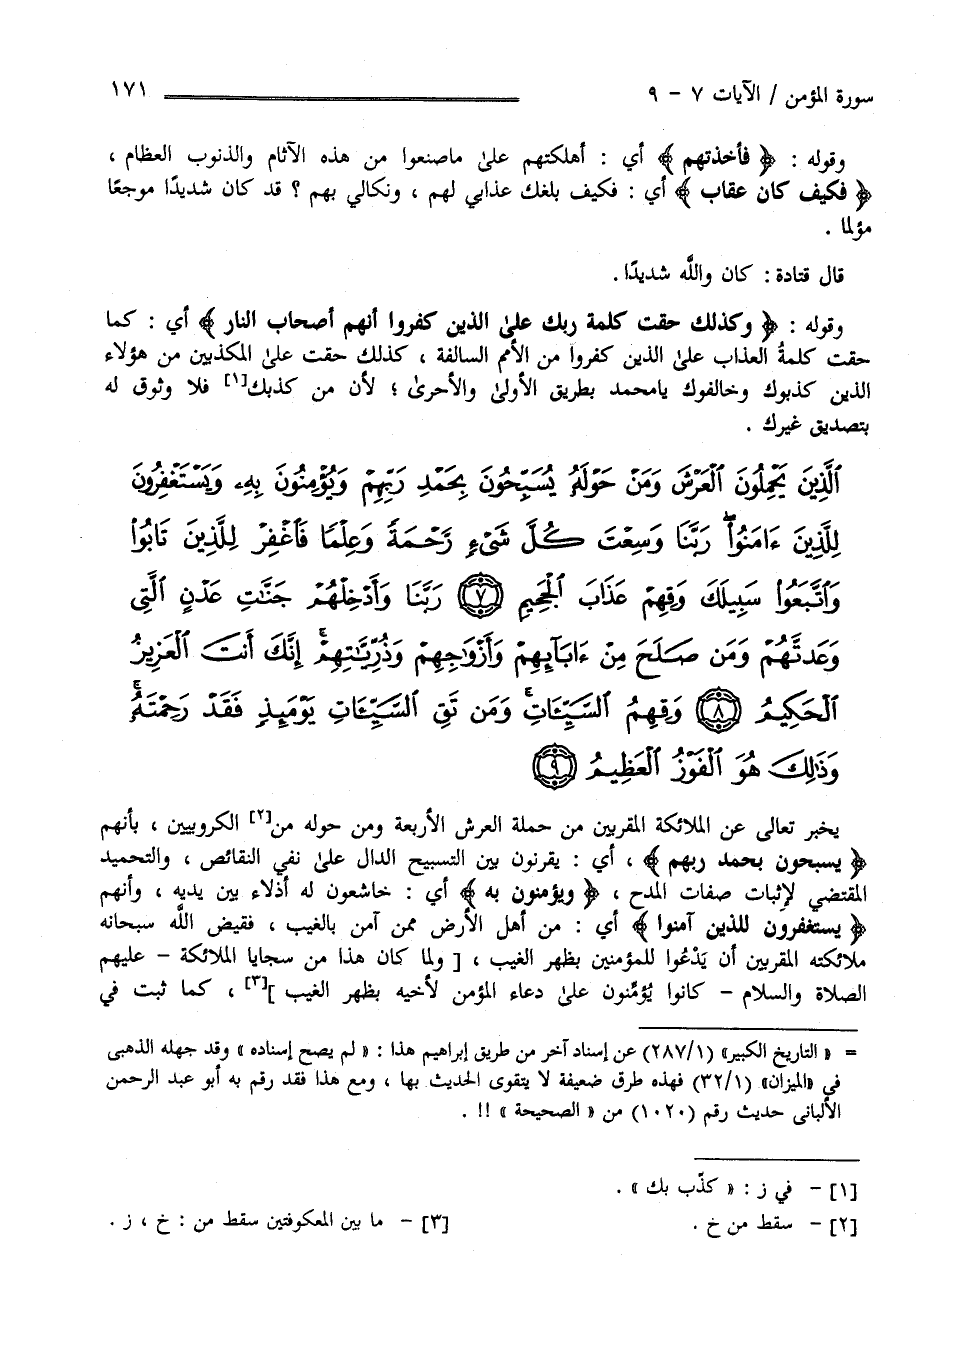 سورة المؤمن / الآيات ٧ - ٩ ١٧١
وقوله : ﴿ فأخذتهم ﴾ أي : أهلكتهم علىٰ ماصنعوا من هذه الآثام والذنوب العظام ،
﴿ فكيف كان عقاب ﴾ أي : فكيف بلغك عذابي لهم ، ونكالي بهم ؟ قد كان شديدًا موجعًا
مؤلما .
قال قتادة : كان واللَّه شديدًا .
وقوله : ﴿ وكذلك حقت كلمة ربك علىٰ الذين كفروا أنهم أصحاب النار ﴾ أي : كما
حقت كلمةُ العذاب علىٰ الذين كفروا من الأمم السالفة ، كذلك حقت علىٰ المكذبين من هؤلاء
الذين كذبوك وخالفوك يامحمد بطريق الأولىٰ والأحرىٰ ؛ لأن من كذبك[١] فلا وثوق له
بتصديق غيرك .
ٱلَّذِينَ يَحْمِلُونَ ٱلْعَرْشَ وَمَنْ حَوْلَهُۥ يُسَبِّحُونَ بِحَمْدِ رَبِّهِمْ وَيُؤْمِنُونَ بِهِۦ وَيَسْتَغْفِرُونَ
لِلَّذِينَ ءَامَنُوا۟ۖ رَبَّنَا وَسِعْتَ كُلَّ شَىْءٍ رَّحْمَةً وَعِلْمًا فَٱغْفِرْ لِلَّذِينَ تَابُوا۟
وَٱتَّبَعُوا۟ سَبِيلَكَ وَقِهِمْ عَذَابَ ٱلْجَحِيمِ ٧ رَبَّنَا وَأَدْخِلْهُمْ جَنَّٰتِ عَدْنٍ ٱلَّتِى
وَعَدتَّهُمْ وَمَن صَلَحَ مِنْ ءَابَآئِهِمْ وَأَزْوَٰجِهِمْ وَذُرِّيَّٰتِهِمْۚ إِنَّكَ أَنتَ ٱلْعَزِيزُ
ٱلْحَكِيمُ ٨ وَقِهِمُ ٱلسَّيِّـَٔاتِۚ وَمَن تَقِ ٱلسَّيِّـَٔاتِ يَوْمَئِذٍ فَقَدْ رَحِمْتَهُۥۚ
وَذَٰلِكَ هُوَ ٱلْفَوْزُ ٱلْعَظِيمُ ٩
يخبر تعالى عن الملائكة المقربين من حملة العرش الأربعة ومن حوله من[٢] الكروبيين ، بأنهم
﴿ يسبحون بحمد ربهم ﴾ ، أي : يقرنون بين التسبيح الدال علىٰ نفي النقائص ، والتحميد
المقتضي لإثبات صفات المدح ، ﴿ ويؤمنون به ﴾ أي : خاشعون له أذلاء بين يديه ، وأنهم
﴿ يستغفرون للذين آمنوا ﴾ أي : من أهل الأرض ممن آمن بالغيب ، فقيض اللَّه سبحانه
ملائكته المقربين أن يَدْعُوا للمؤمنين بظهر الغيب ، [ ولما كان هذا من سجايا الملائكة - عليهم
الصلاة والسلام - كانوا يُؤمِّنون علىٰ دعاء المؤمن لأخيه بظهر الغيب ][٣] ، كما ثبت في
= « التاريخ الكبير» (٢٨٧/١) عن إسناد آخر من طريق إبراهيم هذا : « لم يصح إسناده » وقد جهله الذهبى
في «الميزان» (٣٢/١) فهذه طرق ضعيفة لا يتقوى الحديث بها ، ومع هذا فقد رقم به أبو عبد الرحمن
الألبانى حديث رقم (١٠٢٠) من « الصحيحة » !! .
[١] - في ز : « كذّب بك » .
[٢] - سقط من خ . [٣] - ما بين المعكوفتين سقط من : خ ، ز .